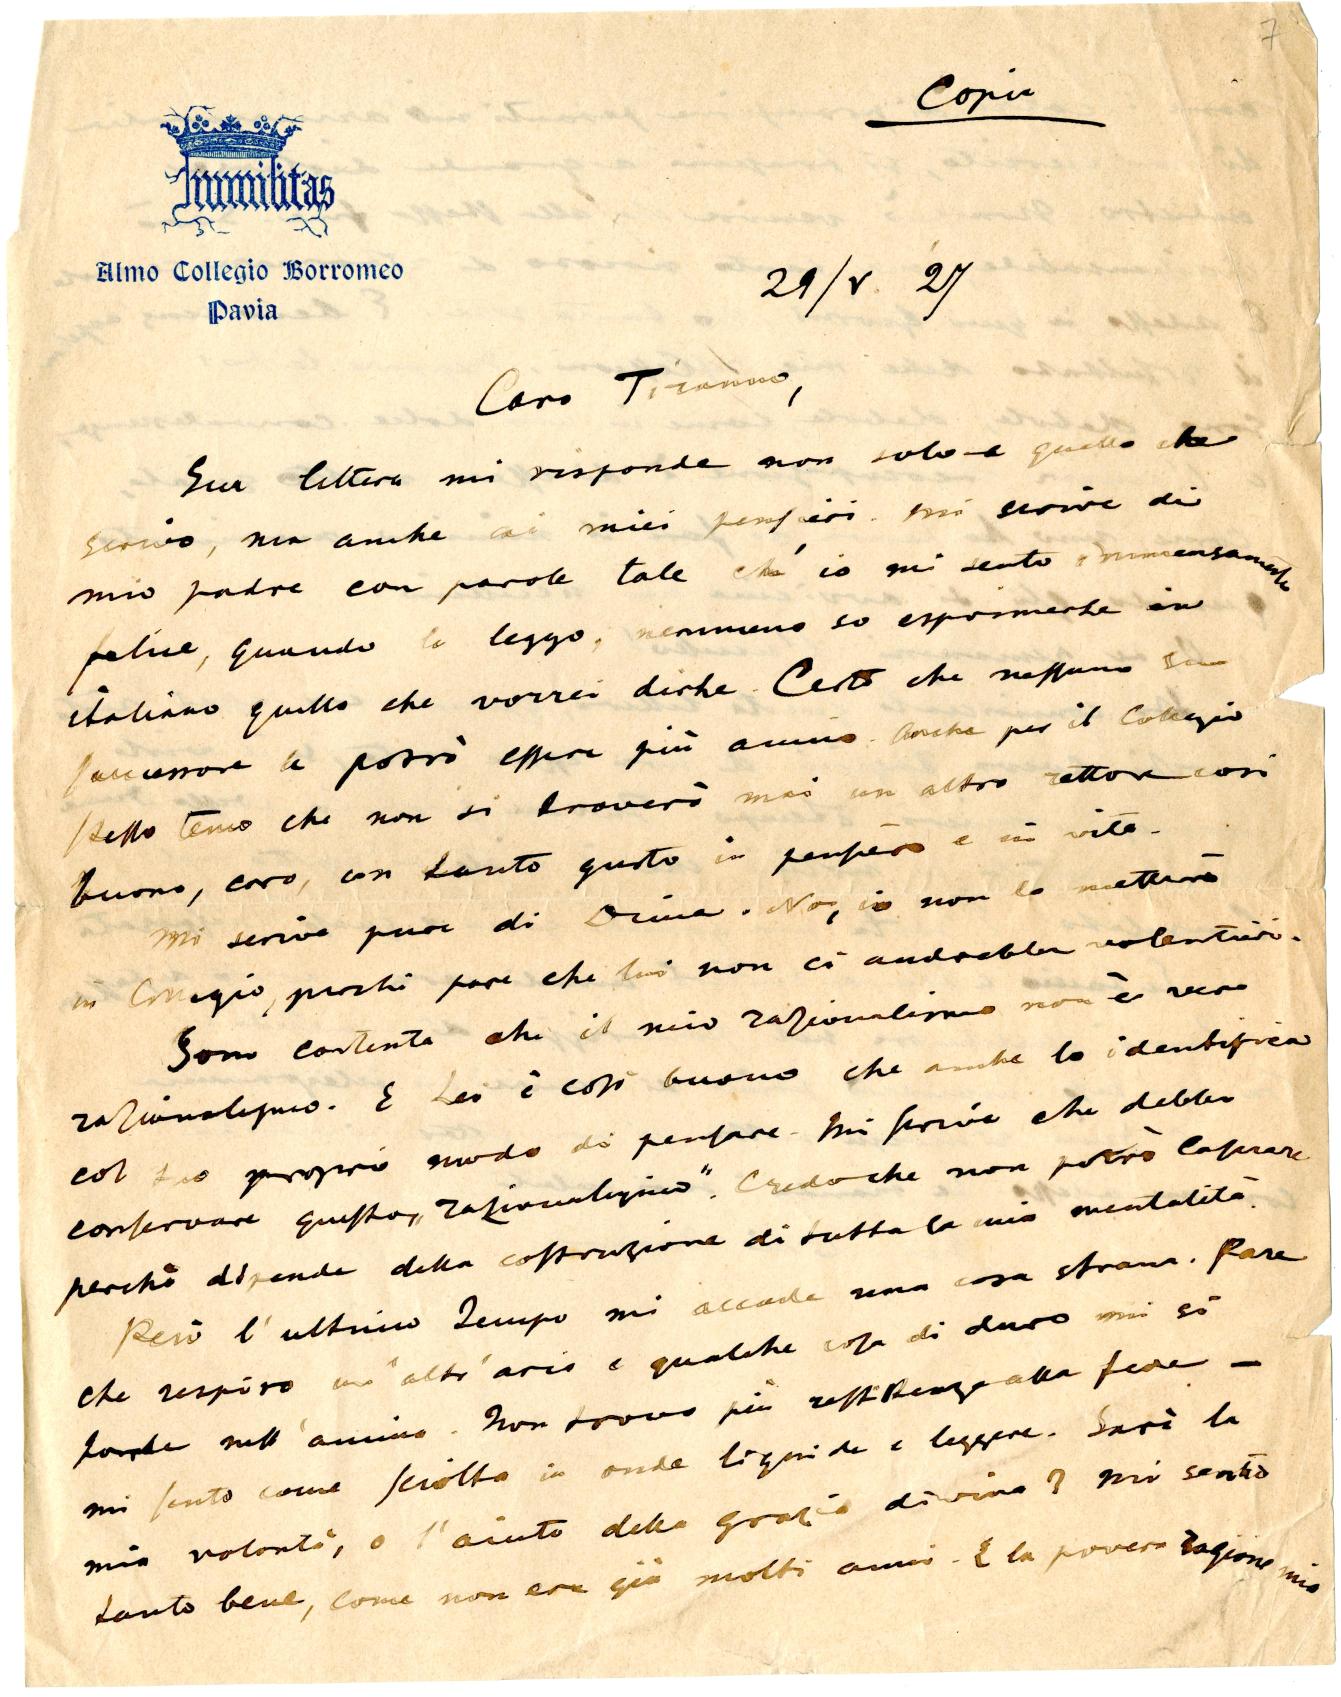 7
Copia
humilitas
Almo Collegio Borromeo
Pavia
29/V. '27
Caro Tiranno,
Sua lettera mi risponde non solo a quello che
scrivo, ma anche ai miei pensieri. Mi scrive di
mio padre con parole tale ch' io mi sento immensamente
felice, quando la leggo, nemmeno so esprimerle in
italiano quello che vorrei dirle. Certo che nessuno suo
successore le potrò essere più amico. Anche per il Collegio
stesso temo che non si troverà mai un altro rettore così
buono, caro, con tanto gusto in pensiero e in vita.
Mi scrive pure di . No, io non lo metterò
in Collegio, perchè pare che lui non ci andrebbe volentieri.
Sono contenta che il mio razionalismo non è vero
razionalismo. E Lei è così buono che anche lo identifica
col suo proprio modo di pensare. Mi scrive che debba
conservare questo „razionalismo". Credo che non potrò lasciare
perchè dipende della costruzione di tutta la mia mentalità.
Però l'ultimo tempo mi accade una cosa strana. Pare
che respiro un' altr' aria e qualche cosa di duro mi si
fonde nell' animo. Non trovo più resistenza alla fede –
mi sento come sciolta in onde liquide e leggere. Sarà la
mia volontà, o l'aiuto della grazia divina? Mi sento
tanto bene, come non ero già molti anni. E la povera ragione mia